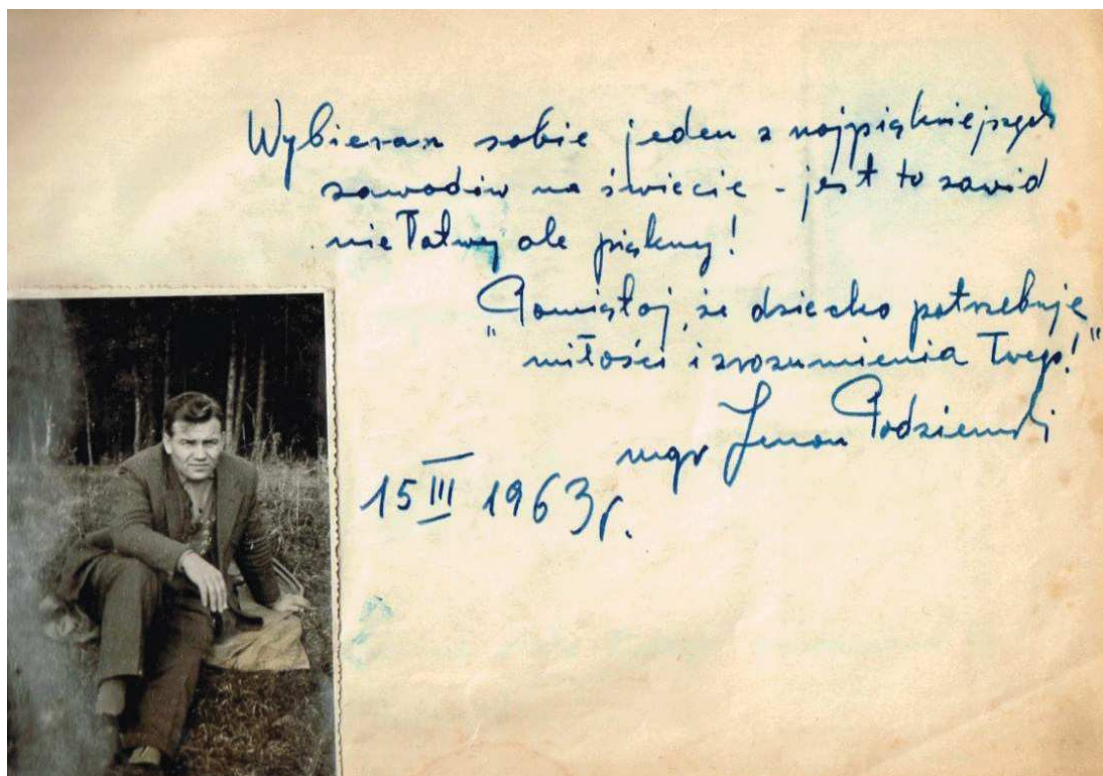 Wybierasz sobie jeden z najpiękniejszych
zawodów na świecie - jest to zawód
nie łatwy ale piękny!
Pamiętaj, że dziecko potrzebuje
"miłości i zrozumienia Twego!"
mgr Zenon Podziemski
15 III 1963 r.